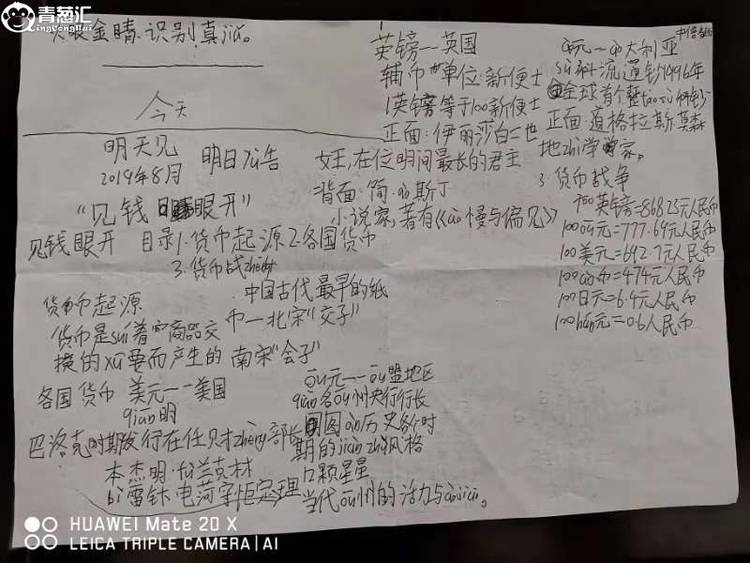 青葱汇
QingCongHui
金睛识别真
今天
明天见
2019年8月
明日
"见钱眼开"
见钱眼开 目录1.货币起源2.各国货币
3.货币战zheng
货币起源
货币是sui着商品交
换的xu要而产生的
中国古代最早的纸
币一北宋"交子"
南宋"会子"
各国货币 美元一一美国
qian明
巴洛克时期发行在任财zheng部长
本杰明·fu兰克林
bi雷针 电荷守恒定理
ou元一一ou盟地区
qian名ou州央行行长
图 历史各个时
期的jian zhu风格
12颗星星
当代ou州的活力与
英镑一一英国
辅币单位:新便士
1英镑等于100新便士
正面:伊丽莎白二世
女王,在位时间最长的君主
背面:简·ao斯丁
小说家,著有《ao慢与偏见》
中信
ao元一ao大利亚
su料流通钞1996年
全球首个整tao su料钞
正面:道格拉斯莫森
地zhi学家。
3.货币战争
100英镑=868.25元人民币
100ou元=777.69元人民币
100美元=692.7元人民币
100ao币=474元人民币
100日元=6.4元人民币
100han元=0.6人民币
HUAWEI Mate 20 X
LEICA TRIPLE CAMERA | AI